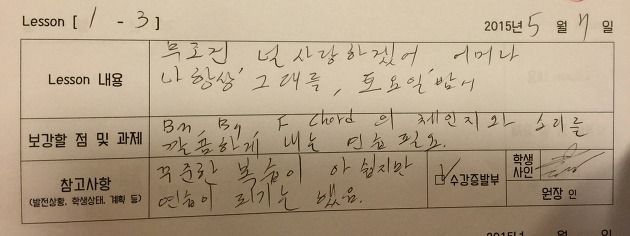 Lesson [ 1 - 3 ] 2015년 5 월 7 일
Lesson 내용
무조건 널 사랑하겠어 어머나
나 항상 그대를, 토요일 밤에
보강할 점 및 과제
Bm, B7, F Chord 의 체인지와 소리를
깔끔하게 내는 연습 필요.
참고사항
(발전상황, 학생상태, 계획 등)
꾸준한 복습이 아쉽지만
연습이 되기는 했음.
수강증발부
학생
사인
원장 인
2015년 월 일